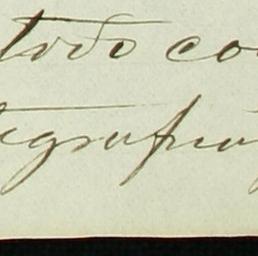 todo co
tigrafia